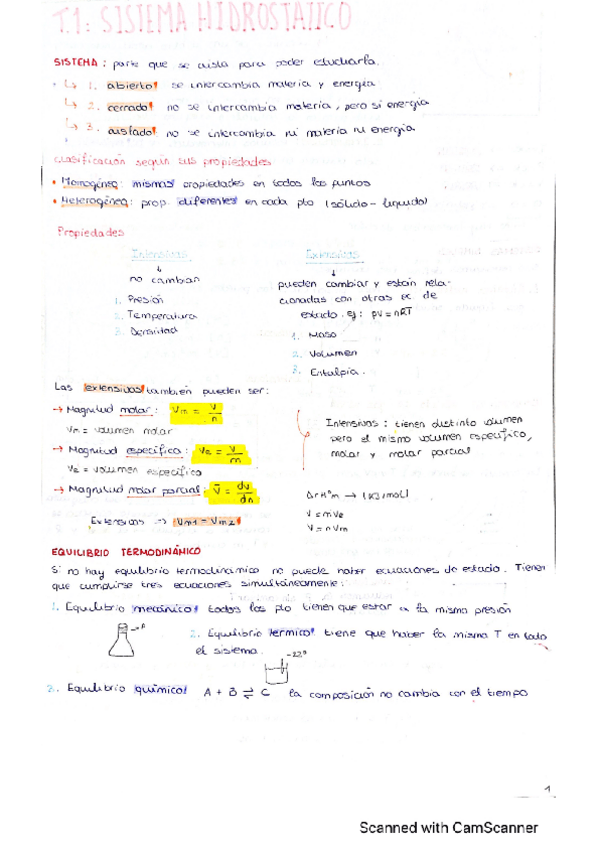 T.1: SISTEMA HIDROSTÁTICO
SISTEMA: parte que se aisla para poder estudiarla.
↳ 1. abierto: se intercambia materia y energía
↳ 2. cerrado: no se intercambia materia, pero si energía
↳ 3. aislado: no se intercambia ni materia ni energía
Clasificación según sus propiedades
• Homogénea: mismas propiedades en todos los puntos
• Heterogénea: prop. diferentes en cada pto (sólido - líquido)
Propiedades
Intensivas
↓
no cambian
1. Presión
2. Temperatura
3. Densidad
Extensivas
↓
pueden cambiar y están rela-
cionadas con otras ec de
estado. ej: pV = nRT
1. Masa
2. Volumen
3. Entalpía.
Las extensivas también pueden ser:
→ Magnitud molar: Vm = V/n
Vm = volumen molar
→ Magnitud específica: Ve = V/m
Ve = volumen específico
→ Magnitud molar parcial: V̄ = dV/dn
Extensivas => Vm1 = Vm2
Intensivas: tienen distinto volumen
pero el mismo volumen específico,
molar y molar parcial
ΔrH°m → (kJ/mol)
V = mVe
V = nVm
EQUILIBRIO TERMODINÁMICO
Si no hay equilibrio termodinámico no puede haber ecuaciones de estado. Tienen
que cumplirse tres ecuaciones simultáneamente:
1. Equilibrio mecánico: todos los pto tienen que estar a la misma presión
2. Equilibrio térmico: tiene que haber la misma T en todo
el sistema.
3. Equilibrio químico: A + B ⇌ C la composición no cambia con el tiempo
1
Scanned with CamScanner